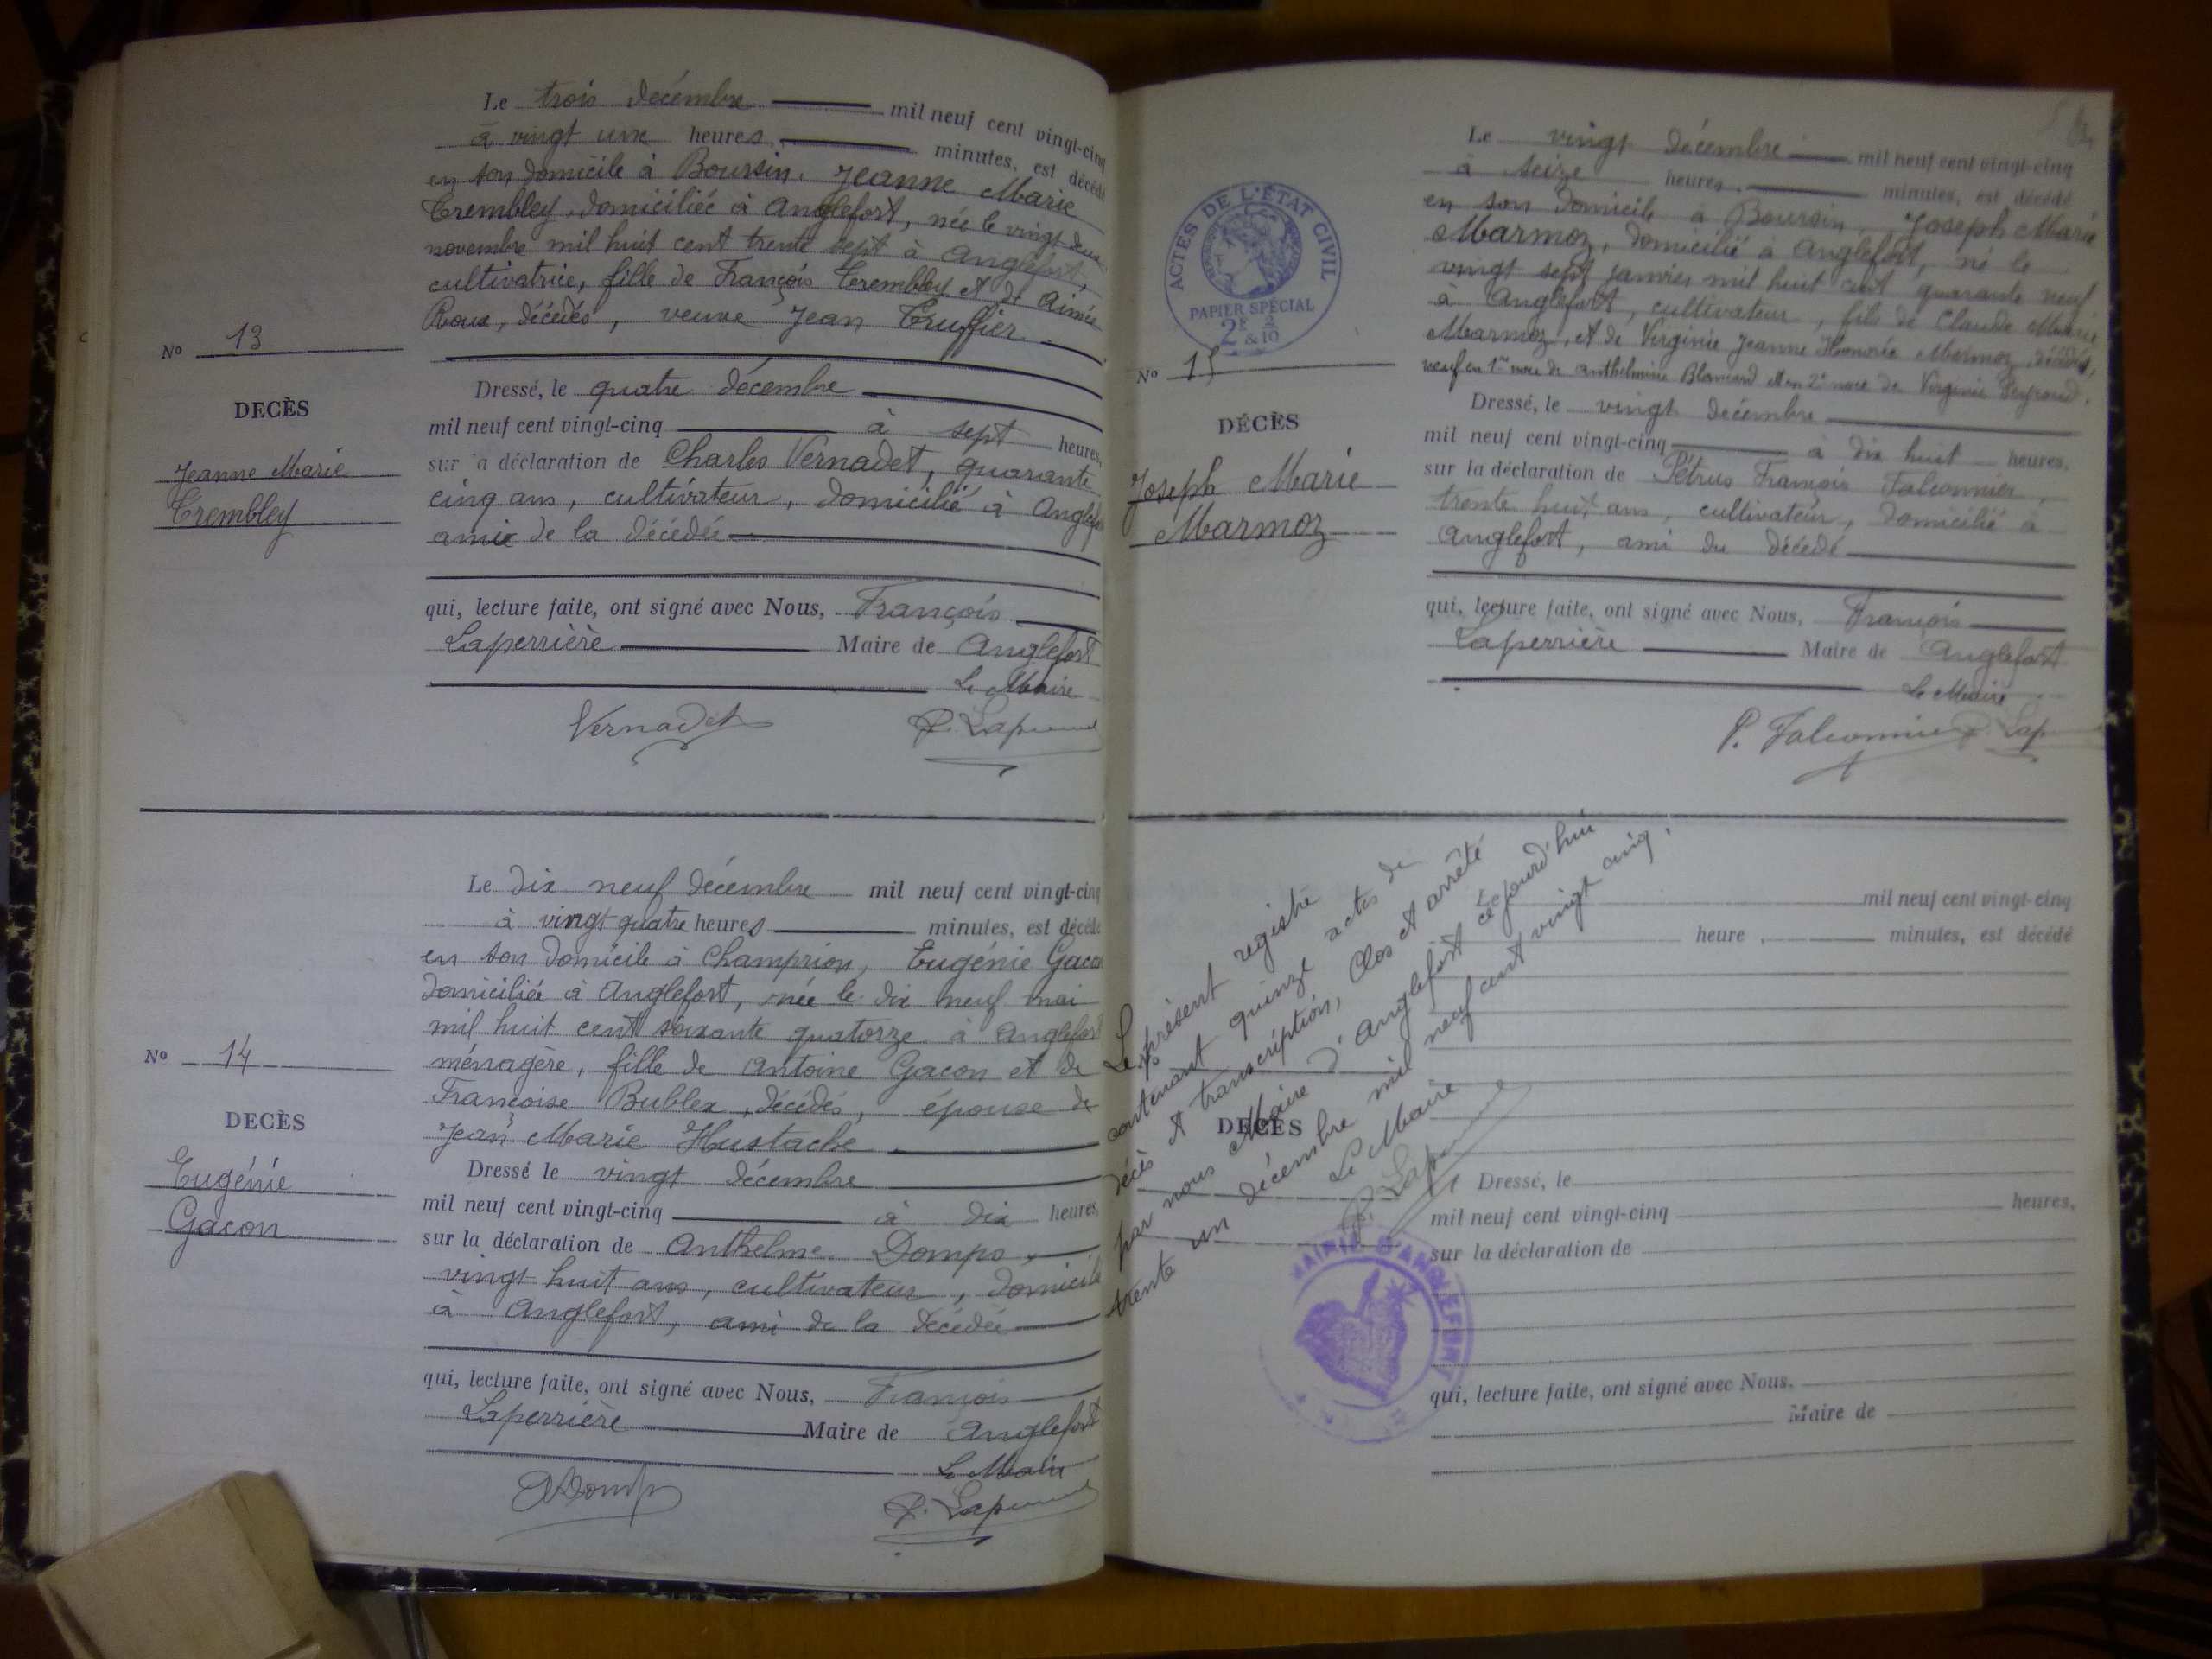 Le trois décembre mil neuf cent vingt-cinq
à vingt une heures, minutes, est décédé
en son domicile à Boursin, Jeanne Marie
Trembley, domiciliée à Anglefort, née le vingt deux
novembre mil huit cent trente sept à Anglefort,
cultivatrice, fille de François Trembley et de Aimée
Roux, décédés, veuve Jean Truffier
No 13
DECÈS
Jeanne Marie
Trembley
Dressé, le quatre décembre
mil neuf cent vingt-cinq à sept heures,
sur la déclaration de Charles Vernadet, quarante
cinq ans, cultivateur, domicilié à Anglefort
ami de la décédée
qui, lecture faite, ont signé avec Nous, François
Laperrière Maire de Anglefort
Le Maire
Vernadet
Le dix neuf décembre mil neuf cent vingt-cinq
à vingt quatre heures minutes, est décédé
en son domicile à Champrion, Eugénie Gacon
domiciliée à Anglefort, née le dix neuf mai
mil huit cent soixante quatorze à Anglefort
ménagère, fille de Antoine Gacon et de
Françoise Bublex, décédés, épouse de
Jean Marie Hustache
No 14
DECÈS
Eugénie
Gacon
Dressé le vingt décembre
mil neuf cent vingt-cinq à dix heures,
sur la déclaration de Anthelme Domps,
vingt huit ans, cultivateur, domicilié
à Anglefort, ami de la décédée
qui, lecture faite, ont signé avec Nous, François
Laperrière Maire de Anglefort
Le Maire
ADomps
ACTES DE L'ÉTAT CIVIL
PAPIER SPÉCIAL
2F & 2/10
Le vingt décembre mil neuf cent vingt-cinq
à seize heures, minutes, est décédé
en son domicile à Boursin, Joseph Marie
Marmoz, domicilié à Anglefort, né le
vingt sept janvier mil huit cent quarante neuf
à Anglefort, cultivateur, fils de Claude Marie
Marmoz, et de Virginie Jeanne Honorée Marmoz, décédés,
veuf en 1re noce de Anthelmine et en 2e noce de Virginie
No 15
DÉCÈS
Joseph Marie
Marmoz
Dressé, le vingt décembre
mil neuf cent vingt-cinq à dix huit heures,
sur la déclaration de Pétrus François Falconnier,
trente huit ans, cultivateur, domicilié à
Anglefort, ami du décédé
qui, lecture faite, ont signé avec Nous, François
Laperrière Maire de Anglefort
Le Maire
P. Falconnier
Le présent registre
contenant quinze actes de
décès et transcription, Clos et arrêté
par nous Maire d'Anglefort ce jourd'hui
trente un décembre mil neuf cent vingt cinq.
Le Maire
MAIRIE D'ANGLEFORT
Le mil neuf cent vingt-cinq
heure , minutes, est décédé
No
DECÈS
Dressé, le
mil neuf cent vingt-cinq heures,
sur la déclaration de
qui, lecture faite, ont signé avec Nous,
Maire de